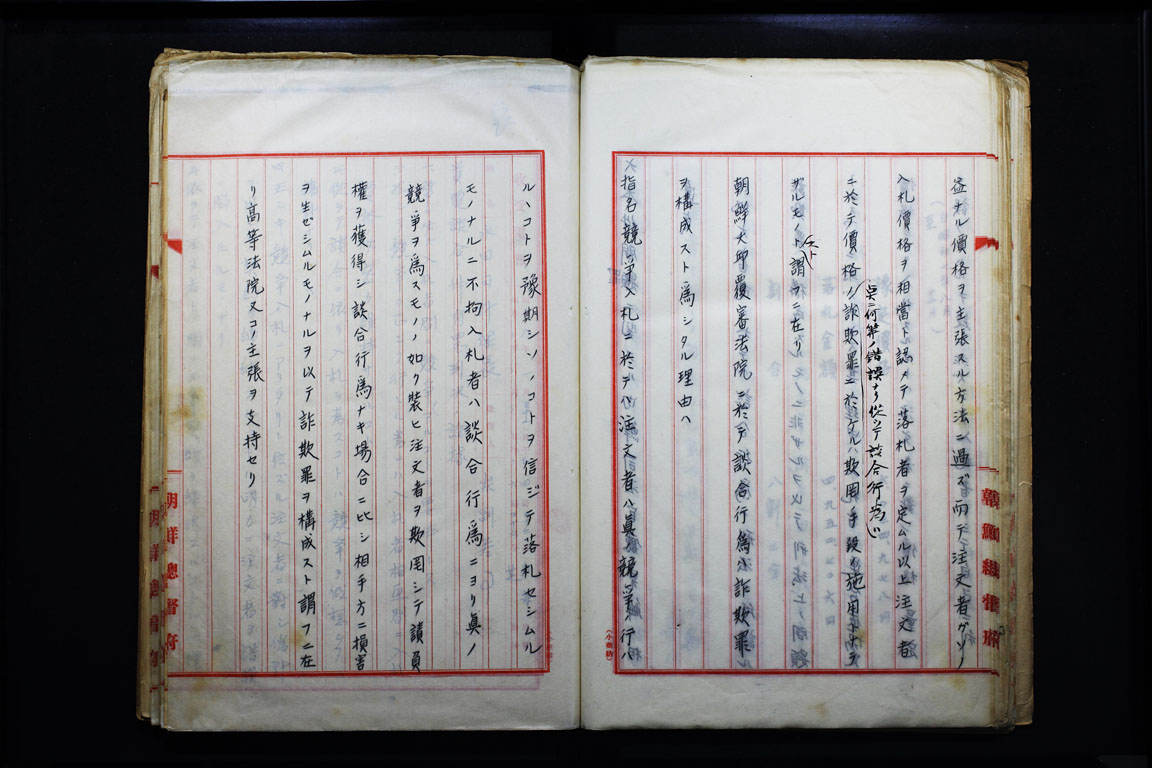 益ナル價格ヲ主張スル方法ニ過ズ而テ注文者ガソノ
入札價格ヲ相當ト認メテ落札者ヲ定ムル以上注文者
ニ於テ價格ノ
点ニ何等ノ錯誤ナク從ッテ談合行爲ハ
詐欺罪ニ於ケル欺罔手段ノ施用ニ非
ザルモノト
謂フニ在リ
朝鮮大邱覆審法院ニ於テ談合行爲ハ詐欺罪
ヲ構成スト爲シタル理由ハ
指名競爭入札ニ於テハ注文者ハ眞ノ競爭行ハ
ルヽコトヲ豫期シソノコトヲ信ジテ落札セシムル
モノナルニ不拘入札者ハ談合行爲ニヨリ眞ノ
競爭ヲ爲スモノノ如ク裝ヒ注文者ヲ欺罔シテ請負
權ヲ獲得シ談合行爲ナキ場合ニ比シ相手方ニ損害
ヲ生ゼシムルモノナルヲ以テ詐欺罪ヲ構成スト謂フニ在
リ高等法院又コノ主張ヲ支持セリ
朝鮮總督府